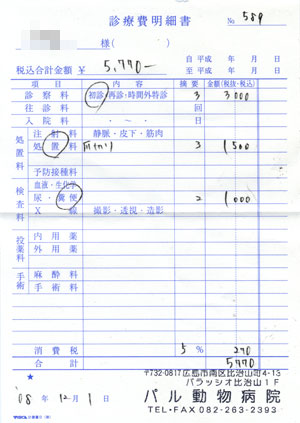 診療費明細書 No 589
様( )
税込合計金額 ¥ 5,770-
自 平成 年 月 日
至 平成 年 月 日
項目 内容 摘要 金額(税抜・税込)
診察料 初診・再診・時間外特診 3 3000
往診料 回
入院料 ・ ～ ・ 日
処置料 注射料 静脈・皮下・筋肉
処置料 爪切り 3 1500
予防接種料
検査料 血液・生化学
尿・糞便 2 1000
X線 撮影・透視・造影
投薬料 内用薬
外用薬
手術 麻酔料
手術料
消費税 5% 270
合計 5770
★
08年12月1日
〒732-0817 広島市南区比治山町4-13
パラッシオ比治山1F
パル動物病院
TEL・FAX 082-263-2393